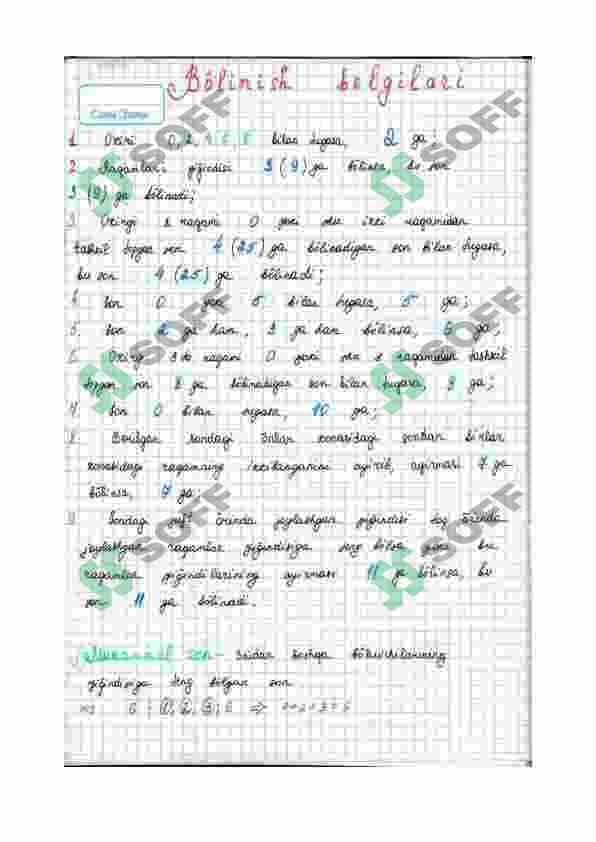 Bölinish belgilari
1. Oxiri 0, 2, 4, 6, 8 bilan tugasa, 2 ga;
2. Raqamlari yiğindisi 3 (9) ga bölinsa, bu son
3 (9) ga bölinadi;
3. Oxirgi 2 raqami 0 yoki shu ikki raqamidan
tashkil topgan son 4 (25) ga bölinadigan son bilan tugasa,
bu son 4 (25) ga bölinadi;
4. Son 0 yoki 5 bilan tugasa, 5 ga;
5. Son 2 ga ham, 3 ga ham bölinsa, 6 ga;
6. Oxirgi 3 ta raqami 0 yoki shu 3 raqamidan tashkil
topgan son 8 ga bölinadigan son bilan tugasa, 8 ga;
7. Son 0 bilan tugasa, 10 ga;
8. Berilgan sondagi önlar xonasidagi sondan birlar
xonasidagi raqamning ikkilanganini ayirib, ayirmasi 7 ga
bölinsa, 7 ga;
9. Sondagi juft örinda joylashgan yiğindisi toq örinda
joylashgan raqamlar yiğindisiga teng bölsa yoki bu
raqamlar yiğindilarining ayirmasi 11 ga bölinsa, bu
son 11 ga bölinadi.
Mukammal son - özidan boshqa böluvchilarining
yiğindisiga teng bölgan son
6 ; 1, 2, 3, 6 => 1+2+3=6
SOFF
SOFF
SOFF
SOFF
SOFF
SOFF